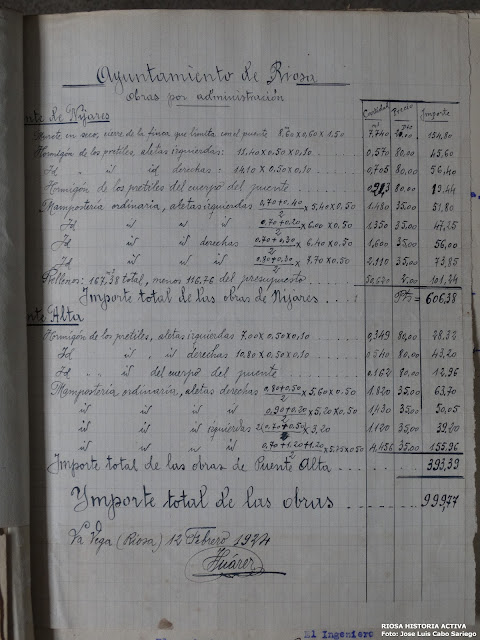 Ayuntamiento de Riosa
Obras por administración
nte de Nijares Cantidad Precio Importe
en seco, cierre de la finca que limita con el puente 8.60 x 0.60 x 1.50 7.740 154,80
Hormigón de los pretiles, aletas izquierdas: 11.40 x 0.50 x 0.10 0.570 80,00 45,60
Id " id id derechas: 14.10 x 0.50 x 0.10 0,705 80,00 56,40
Hormigón de los pretiles del cuerpo del puente 80,00
Mampostería ordinaria, aletas izquierdas (0,70+0.40)/2 x 5,40 x 0,50 1.480 35,00 51,80
Id id id (0,70+0.20)/2 x 6.00 x 0,50 1,350 35,00 47,25
Id id id derechas (0,70+0,30)/2 x 6.40 x 0,50 1,600 35,00 56,00
Id id id (0,80+0.30)/2 x 7,70 x 0,50 2,110 35,00 73,85
Rellenos: 167,38 total, menos 116,76 del presupuesto 50,620 2,00 101,24
Importe total de las obras de Nijares Pts = 606,38
nte Alta
Hormigón de los pretiles, aletas izquierdas 7.00 x 0,50 x 0,10 80,00
Id " id id derechas 10.80 x 0,50 x 0,10 0,540 80,00 43,20
Id " id del cuerpo del puente 0,162 80,00 12,96
Mampostería, ordinaria, aletas derechas (0,80+0,50)/2 x 5,60 x 0,50 1.820 35,00 63,70
id id id (0,90+0,20)/2 x 5,20 x 0,50 1,430 35,00 50,05
id id id izquierdas 2(0,70+0,50) x 3,20 1.120 35,00 39,20
id id id (0,70+1,20+1,20)/2 x 5.75 x 0,50 4,456 35,00 155,96
Importe total de las obras de Puente Alta 393,39
Importe total de las obras 999,77
La Vega (Riosa) 12 Febrero 1924
Suárez
El Ingeniero
RIOSA HISTORIA ACTIVA
Foto: Jose Luis Cabo Sariego